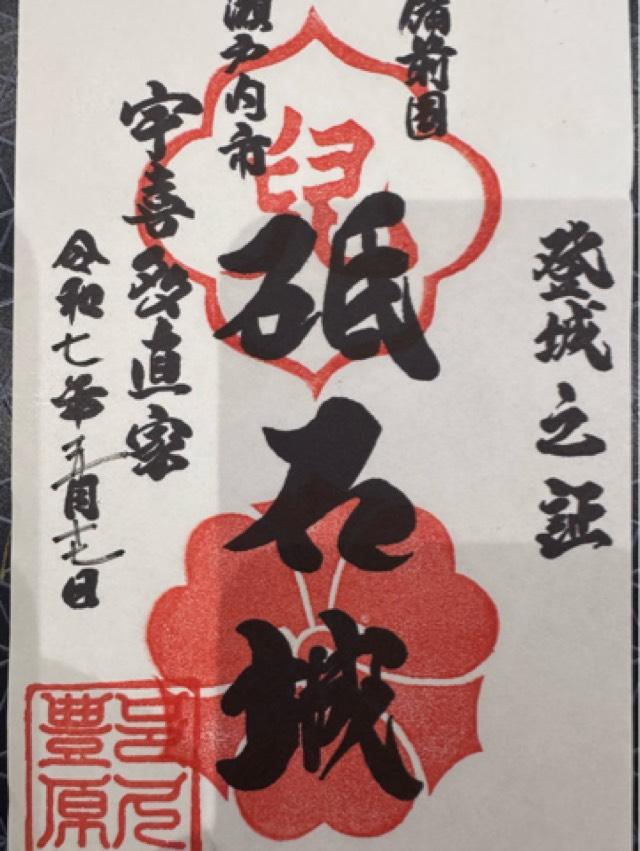 登城之証
備前国
兒
砥石城
瀬戸内市
宇喜多直家
令和七年五月十七日
豊原